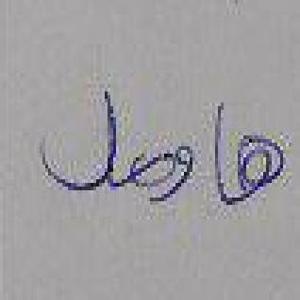 ها وصل